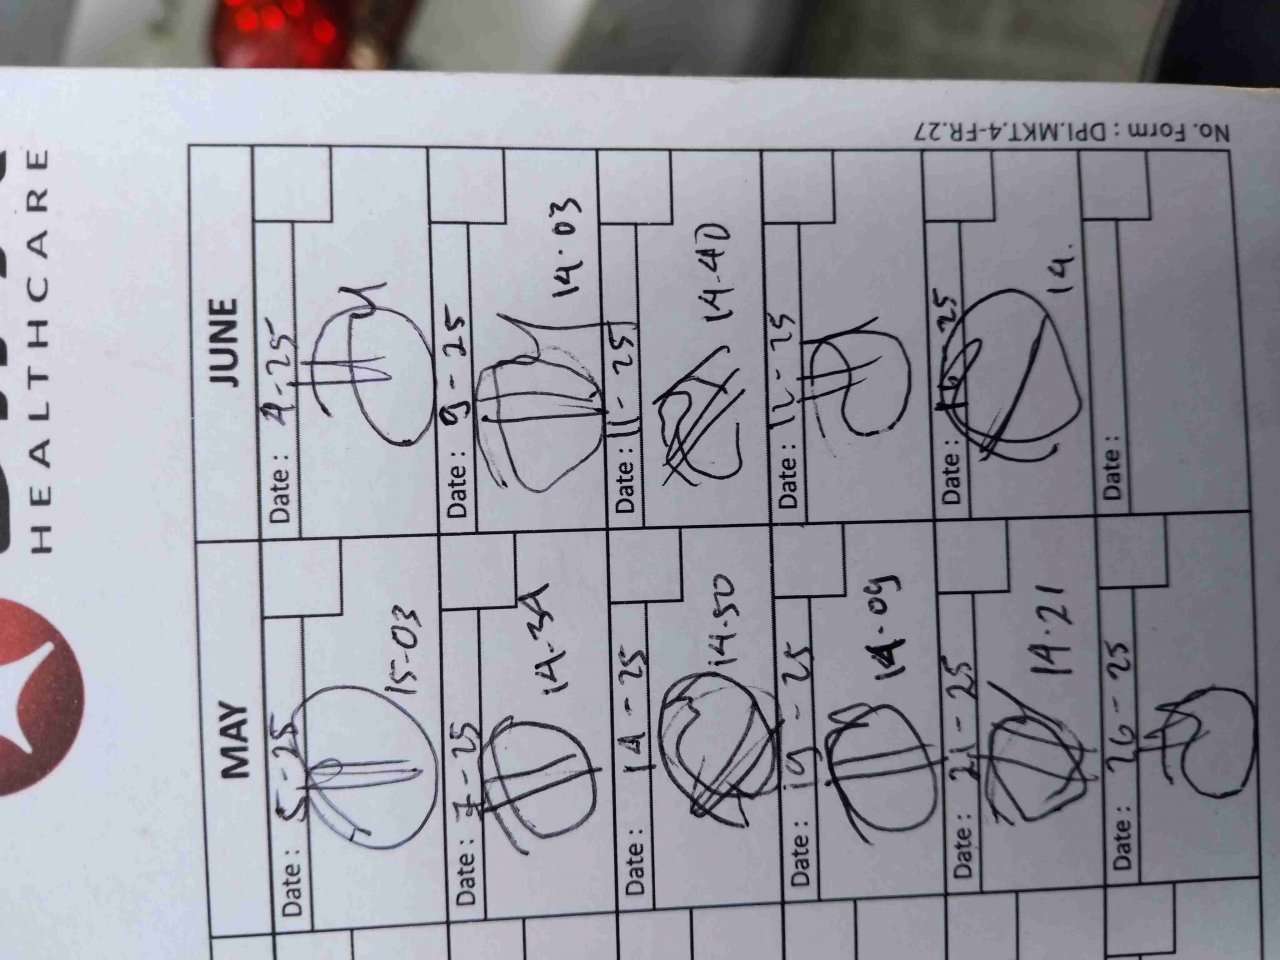 HEALTHCARE
No. Form : DPI.MKT.4-FR.27
MAY
JUNE
Date : 5-25
15-03
Date : 4-25
Date : 7-25
14-34
Date : 9-25
14.03
Date : 14-25
14.50
Date : 11-25
14-40
Date : 19-25
14.09
Date : 12-25
Date : 21-25
14.21
Date : 25
14.
Date : 26-25
Date :